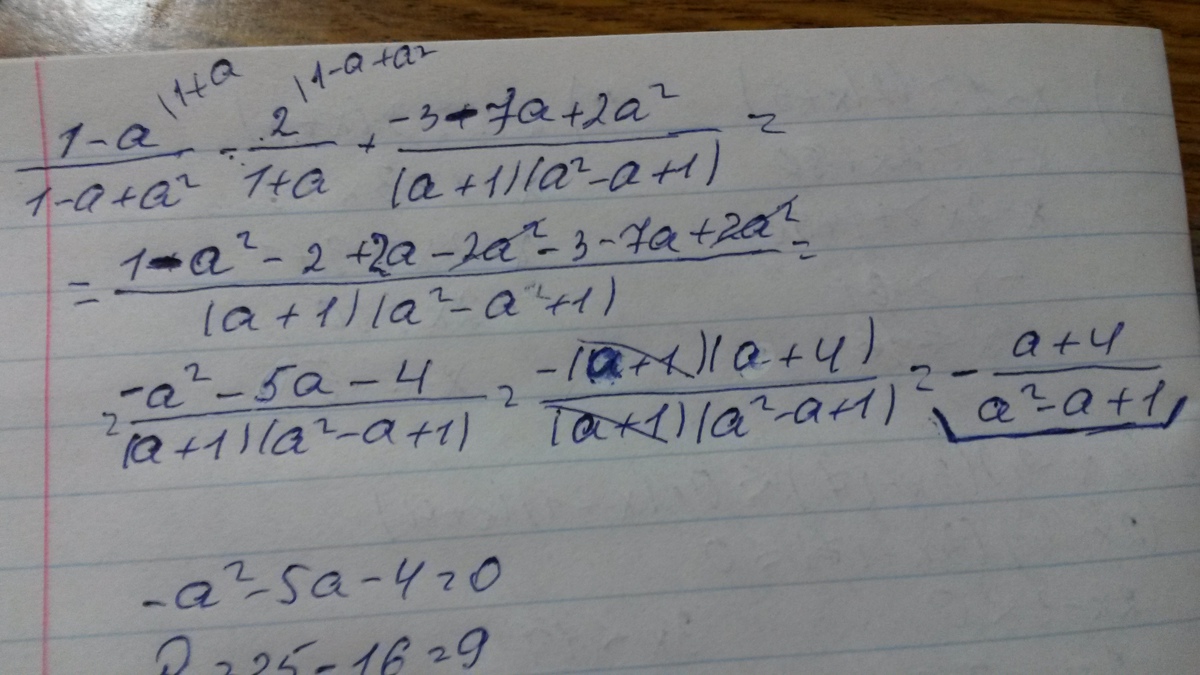 (1-a)/(1-a+a²) \1+a - 2/(1+a) \1-a+a² + (-3-7a+2a²)/((a+1)(a²-a+1)) =
= (1-a²-2+2a-2a²-3-7a+2a²)/((a+1)(a²-a²+1)) =
= (-a²-5a-4)/((a+1)(a²-a+1)) = (-(a+1)(a+4))/((a+1)(a²-a+1)) = -(a+4)/(a²-a+1)
-a²-5a-4=0
D=25-16=9